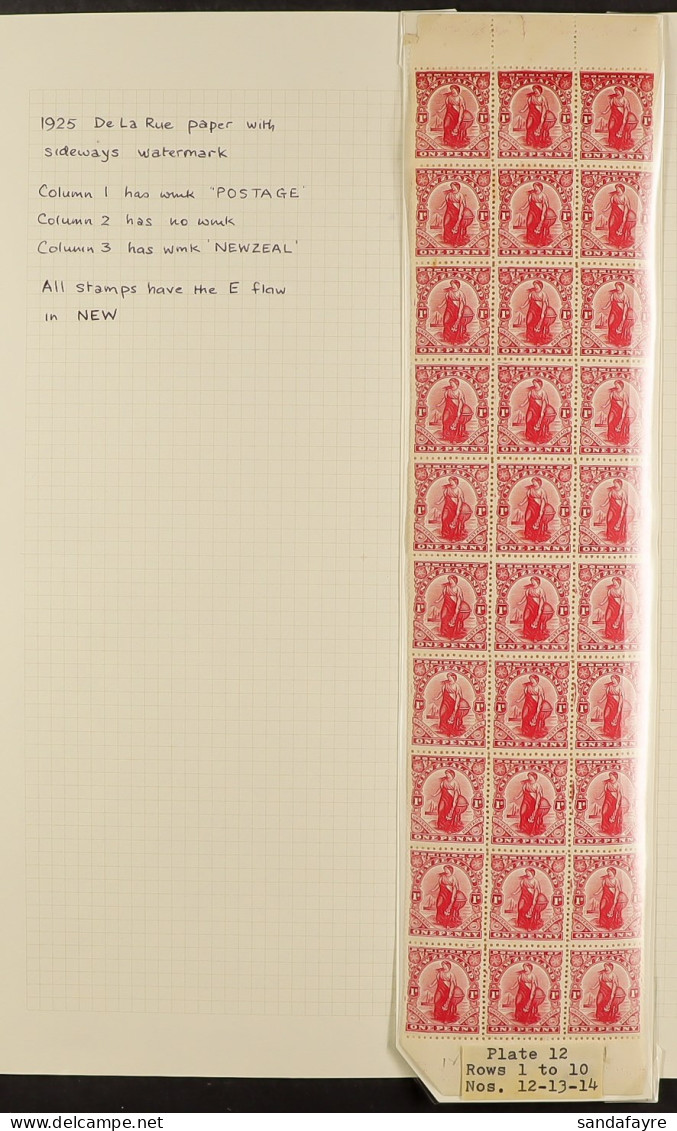 1925 De La Rue paper with
sideways watermark
Column 1 has wmk "POSTAGE'
Column 2 has no wmk
Column 3 has wmk 'NEWZEAL'
All stamps have the E flaw
in NEW
1D 1D
ONE PENNY ONE PENNY ONE PENNY
Plate 12
Rows 1 to 10
Nos. 12-13-14
sandafayre